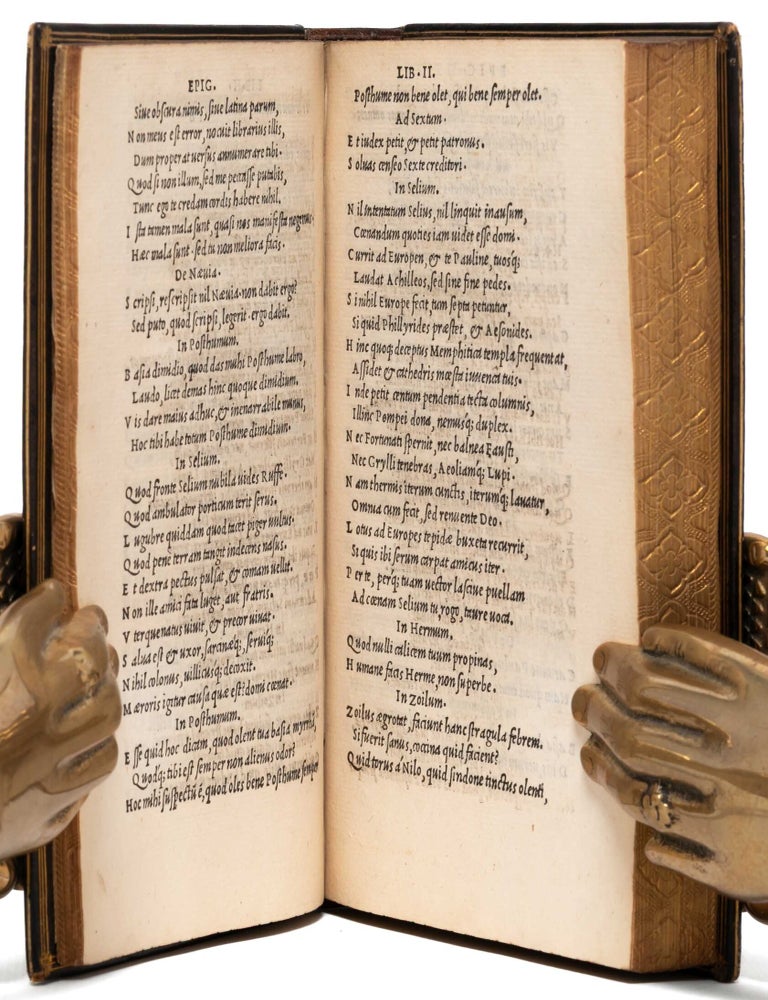 EPIG.
Siue obscura nimis, siue latina parum,
Non meus est error, nocuit librarius illis,
Dum properat uersus annumerare tibi.
Quod si non illum, sed me peccasse putabis,
Tunc ego te credam cordis habere nihil.
Ista tamen mala sunt, quasi nos manifesta negemus.
Hæc mala sunt. sed tu non meliora facis.
De Næuia.
Scripsi, rescripsit nil Næuia. non dabit ergo?
Sed puto, quod scripsi, legerit. ergo dabit.
In Posthumum.
Basia dimidio, quod das mihi Posthume labro,
Laudo, licet demas hinc quoque dimidium.
Vis dare maius adhuc, & inenarrabile munus,
Hoc tibi habe totum Posthume dimidium.
In Selium.
Quod fronte Selium nubila uides Ruffe.
Quod ambulator porticum terit serus.
Lugubre quiddam quod tacet piger uultus.
Quod pene terram tangit indecens nasus.
Et dextra pectus pulsat, & comam uellit.
Non ille amici fata luget, aut fratris.
Vterque natus uiuit, & precor uiuat.
Salua est & uxor, sarcinæq;, seruiq;
Nihil colonus, uillicusq; decoxit.
Mæroris igitur causa quæ est? domi cœnat.
In Posthumum.
Esse quid hoc dicam, quod olent tua basia myrrha,
Quodq; tibi est semper non alienus odor?
Hoc mihi suspectũ ẽ, quod oles bene Posthume semper
LIB. II.
Posthume non bene olet, qui bene semper olet.
Ad Sextum.
Et iudex petit, & petit patronus.
Soluas censeo Sexte creditori.
In Selium.
Nil intentatum Selius, nil linquit inausum,
Cœnandum quoties iam uidet esse domi.
Currit ad Europen, & te Pauline, tuosq;
Laudat Achilleos, sed sine fine pedes.
Si nihil Europe fecit, tum septa petuntur,
Si quid Phillyrides præstet, & Aesonides.
Hinc quoq; deceptus Memphitica templa frequentat,
Assidet & cathedris mœsta iuuenca tuis.
Inde petit centum pendentia tecta columnis,
Illinc Pompei dona, nemusq; duplex.
Nec Fortunati spernit, nec balnea Fausti,
Nec Grylli tenebras, Aeoliamq; Lupi.
Nam thermis iterum cunctis, iterumq; lauatur,
Omnia cum fecit, sed renuente Deo.
Lotus ad Europes tepidæ buxeta recurrit,
Si quis ibi serum carpat amicus iter.
Per te, perq; tuam uector lasciue puellam
Ad cœnam Selium tu, rogo, taure uoca.
In Hermum.
Quod nulli calicem tuum propinas,
Humane facis Herme, non superbe.
In Zoilum.
Zoilus ægrotat, faciunt hanc stragula febrem.
Si fuerit sanus, coccina quid facient?
Quid torus à Nilo, quid sindone tinctus olenti,